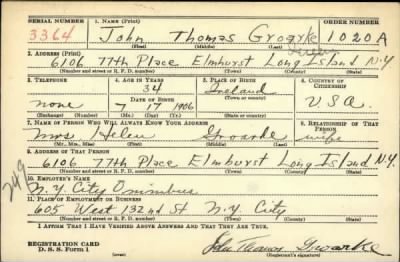 SERIAL NUMBER 1. NAME (Print) ORDER NUMBER
3364 John Thomas Groarke 1020A
(First) (Middle) (Last)
2. ADDRESS (Print)
6106 77th Place Elmhurst Long Island N.Y
(Number and street or R. F. D. number) (Town) (County) (State)
3. TELEPHONE 4. AGE IN YEARS 5. PLACE OF BIRTH 6. COUNTRY OF CITIZENSHIP
34 Ireland
none DATE OF BIRTH (Town or county) U.S.A.
7 17 1906
(Exchange) (Number) (Mo.) (Day) (Yr.) (State or country)
7. NAME OF PERSON WHO WILL ALWAYS KNOW YOUR ADDRESS 8. RELATIONSHIP OF THAT PERSON
Mrs Helen Groarke wife
(Mr., Mrs., Miss) (First) (Middle) (Last)
9. ADDRESS OF THAT PERSON
6106 77th Place Elmhurst Long Island N.Y.
(Number and street or R. F. D. number) (Town) (County) (State)
249
10. EMPLOYER'S NAME
N.Y City Omnibus
11. PLACE OF EMPLOYMENT OR BUSINESS
605 West 132nd St N.Y. City
(Number and street or R. F. D. number) (Town) (County) (State)
I AFFIRM THAT I HAVE VERIFIED ABOVE ANSWERS AND THAT THEY ARE TRUE.
REGISTRATION CARD
D. S. S. Form 1 John Thomas Groarke
(over) (Registrant's signature)